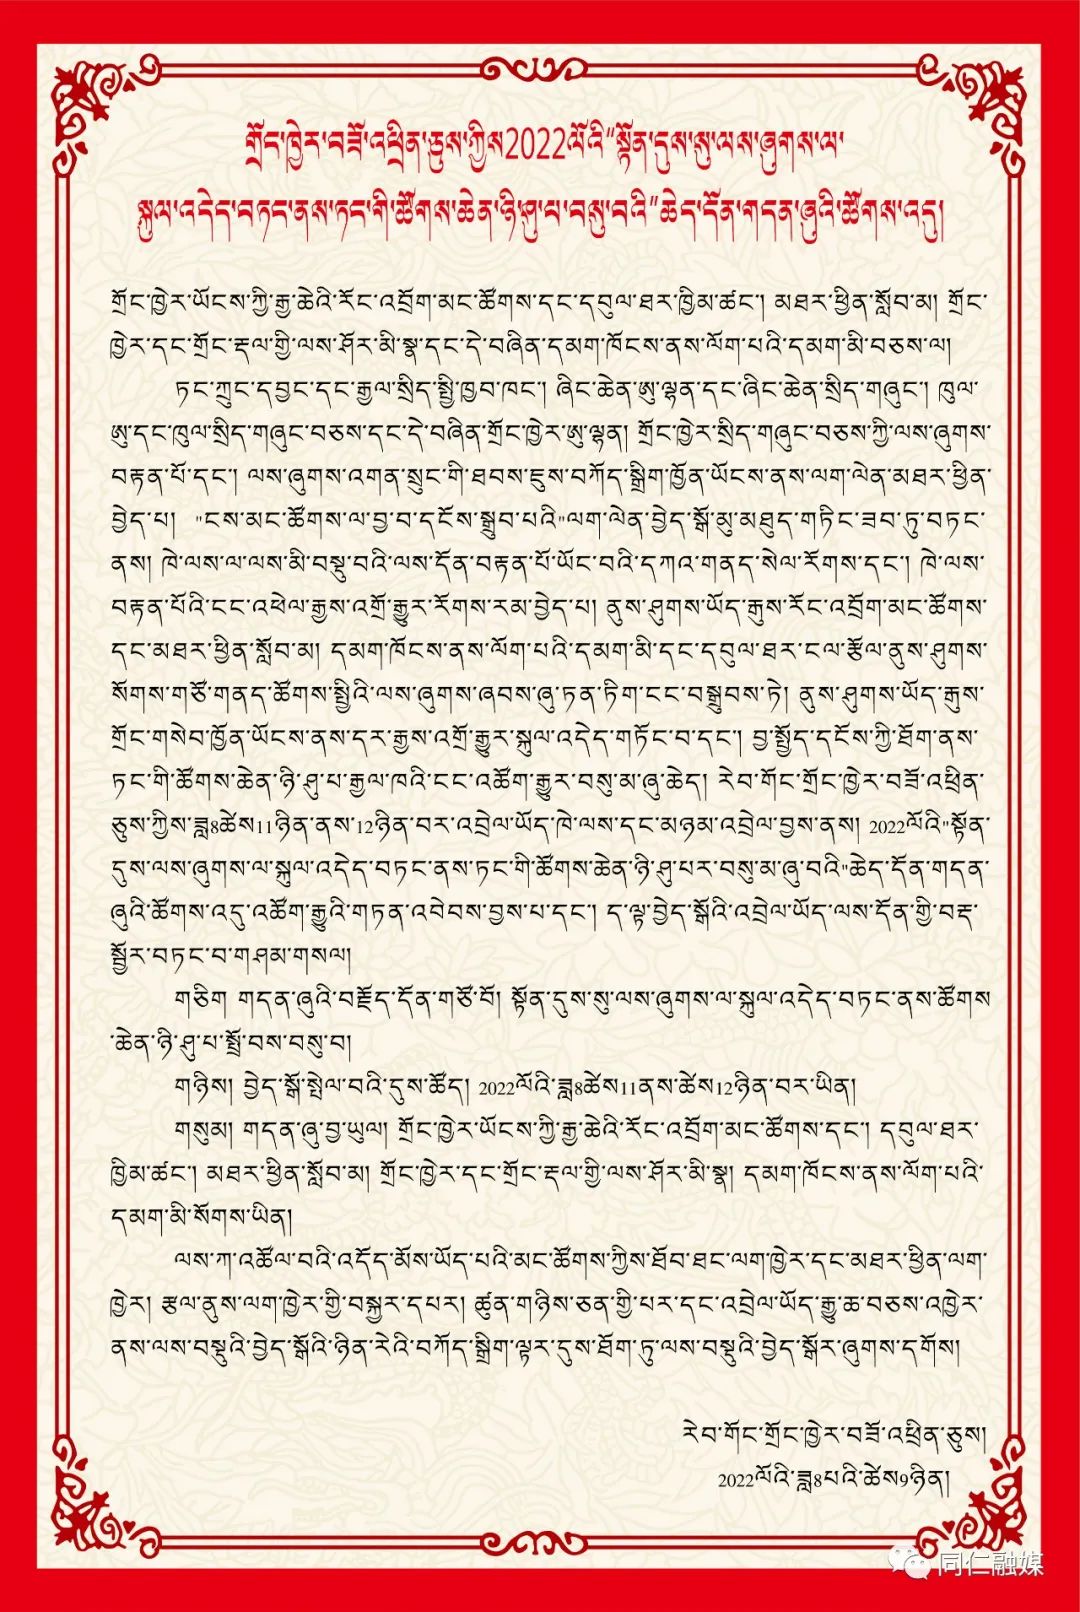 གྲོང་ཁྱེར་བཟོ་འཕྲིན་ཅུས་ཀྱིས2022ལོའི་“སྟོན་དུས་སུ་ལས་ཞུགས་ལ་
སྐུལ་འདེད་བཏང་ནས་ཏང་གི་ཚོགས་ཆེན་ཉི་ཤུ་པ་བསུ་བའི”ཆེད་དོན་གདན་ཞུའི་ཚོགས་འདུ།
གྲོང་ཁྱེར་ཡོངས་ཀྱི་རྒྱ་ཆེའི་རོང་འབྲོག་མང་ཚོགས་དང་དབུལ་ཐར་ཁྱིམ་ཚང་། མཐར་ཕྱིན་སློབ་མ། གྲོང་
ཁྱེར་དང་གྲོང་རྡལ་གྱི་ལས་ཤོར་མི་སྣ་དང་དེ་བཞིན་དམག་ཁོངས་ནས་ལོག་པའི་དམག་མི་བཅས་ལ།
ཏང་ཀྲུང་དབྱང་དང་རྒྱལ་སྲིད་སྤྱི་ཁྱབ་ཁང་། ཞིང་ཆེན་ཨུ་ལྷན་དང་ཞིང་ཆེན་སྲིད་གཞུང་། ཁུལ་
ཨུ་དང་ཁུལ་སྲིད་གཞུང་བཅས་དང་དེ་བཞིན་གྲོང་ཁྱེར་ཨུ་ལྷན། གྲོང་ཁྱེར་སྲིད་གཞུང་བཅས་ཀྱི་ལས་ཞུགས་
བརྟན་པོ་དང་། ལས་ཞུགས་འགན་སྲུང་གི་ཐབས་ཇུས་བཀོད་སྒྲིག་ཁྱོན་ཡོངས་ནས་ལག་ལེན་མཐར་ཕྱིན་
བྱེད་པ། "ངས་མང་ཚོགས་ལ་བྱ་བ་དངོས་སྒྲུབ་པའི"ལག་ལེན་བྱེད་སྒོ་མུ་མཐུད་གཏིང་ཟབ་ཏུ་བཏང་
ནས། ཁེ་ལས་ལ་ལས་མི་བསྡུ་བའི་ལས་དོན་བརྟན་པོ་ཡོང་བའི་དཀའ་གནད་སེལ་རོགས་དང་། ཁེ་ལས་
བརྟན་པོའི་ངང་འཕེལ་རྒྱས་འགྲོ་རྒྱུར་རོགས་རམ་བྱེད་པ། ནུས་ཤུགས་ཡོད་རྒུས་རོང་འབྲོག་མང་ཚོགས་
དང་མཐར་ཕྱིན་སློབ་མ། དམག་ཁོངས་ནས་ལོག་པའི་དམག་མི་དང་དབུལ་ཐར་ངལ་རྩོལ་ནུས་ཤུགས་
སོགས་གཙོ་གནད་ཚོགས་སྤྱིའི་ལས་ཞུགས་ཞབས་ཞུ་ཏན་ཏིག་ངང་བསྒྲུབས་ཏེ། ནུས་ཤུགས་ཡོད་རྒུས་
གྲོང་གསེབ་ཁྱོན་ཡོངས་ནས་དར་རྒྱས་འགྲོ་རྒྱུར་སྐུལ་འདེད་གཏོང་བ་དང་། བྱ་སྤྱོད་དངོས་ཀྱི་ཐོག་ནས་
ཏང་གི་ཚོགས་ཆེན་ཉི་ཤུ་པ་རྒྱལ་ཁའི་ངང་འཚོག་རྒྱུར་བསུ་མ་ཞུ་ཆེད། རེབ་གོང་གྲོང་ཁྱེར་བཟོ་འཕྲིན་
ཅུས་ཀྱིས་ཟླ8ཚེས11ཉིན་ནས་12ཉིན་བར་འབྲེལ་ཡོད་ཁེ་ལས་དང་མཉམ་འབྲེལ་བྱས་ནས། 2022ལོའི"སྟོན་
དུས་ལས་ཞུགས་ལ་སྐུལ་འདེད་བཏང་ནས་ཏང་གི་ཚོགས་ཆེན་ཉི་ཤུ་པར་བསུ་མ་ཞུ་བའི"ཆེད་དོན་གདན་
ཞུའི་ཚོགས་འདུ་འཚོག་རྒྱུའི་གཏན་འབེབས་བྱས་པ་དང་། ད་ལྟ་བྱེད་སྒོའི་འབྲེལ་ཡོད་ལས་དོན་གྱི་བརྡ་
སྦྱོར་བཏང་བ་གཤམ་གསལ།
གཅིག གདན་ཞུའི་བརྗོད་དོན་གཙོ་བོ། སྟོན་དུས་སུ་ལས་ཞུགས་ལ་སྐུལ་འདེད་བཏང་ནས་ཚོགས
་ཆེན་ཉི་ཤུ་པ་སྤྲོ་བས་བསུ་བ།
གཉིས། བྱེད་སྒོ་སྤེལ་བའི་དུས་ཚོད། 2022ལོའི་ཟླ8ཚེས11ནས་ཚེས12ཉིན་བར་ཡིན།
གསུམ། གདན་ཞུ་བྱ་ཡུལ། གྲོང་ཁྱེར་ཡོངས་ཀྱི་རྒྱ་ཆེའི་རོང་འབྲོག་མང་ཚོགས་དང་། དབུལ་ཐར་
ཁྱིམ་ཚང་། མཐར་ཕྱིན་སློབ་མ། གྲོང་ཁྱེར་དང་གྲོང་རྡལ་གྱི་ལས་ཤོར་མི་སྣ། དམག་ཁོངས་ནས་ལོག་པའི་
དམག་མི་སོགས་ཡིན།
ལས་ཀ་འཚོལ་བའི་འདོད་མོས་ཡོད་པའི་མང་ཚོགས་ཀྱིས་ཐོབ་ཐང་ལག་ཁྱེར་དང་མཐར་ཕྱིན་ལག་
ཁྱེར། རྩལ་ནུས་ལག་ཁྱེར་གྱི་བསྐྱར་དཔར། ཚུན་གཉིས་ཅན་གྱི་པར་དང་འབྲེལ་ཡོད་རྒྱུ་ཆ་བཅས་འཁྱེར་
ནས་ལས་བསྡུའི་བྱེད་སྒོའི་ཉིན་རེའི་བཀོད་སྒྲིག་ལྟར་དུས་ཐོག་ཏུ་ལས་བསྡུའི་བྱེད་སྒོར་ཞུགས་དགོས།
རེབ་གོང་གྲོང་ཁྱེར་བཟོ་འཕྲིན་ཅུས།
2022ལོའི་ཟླ8པའི་ཚེས9ཉིན།
同仁融媒